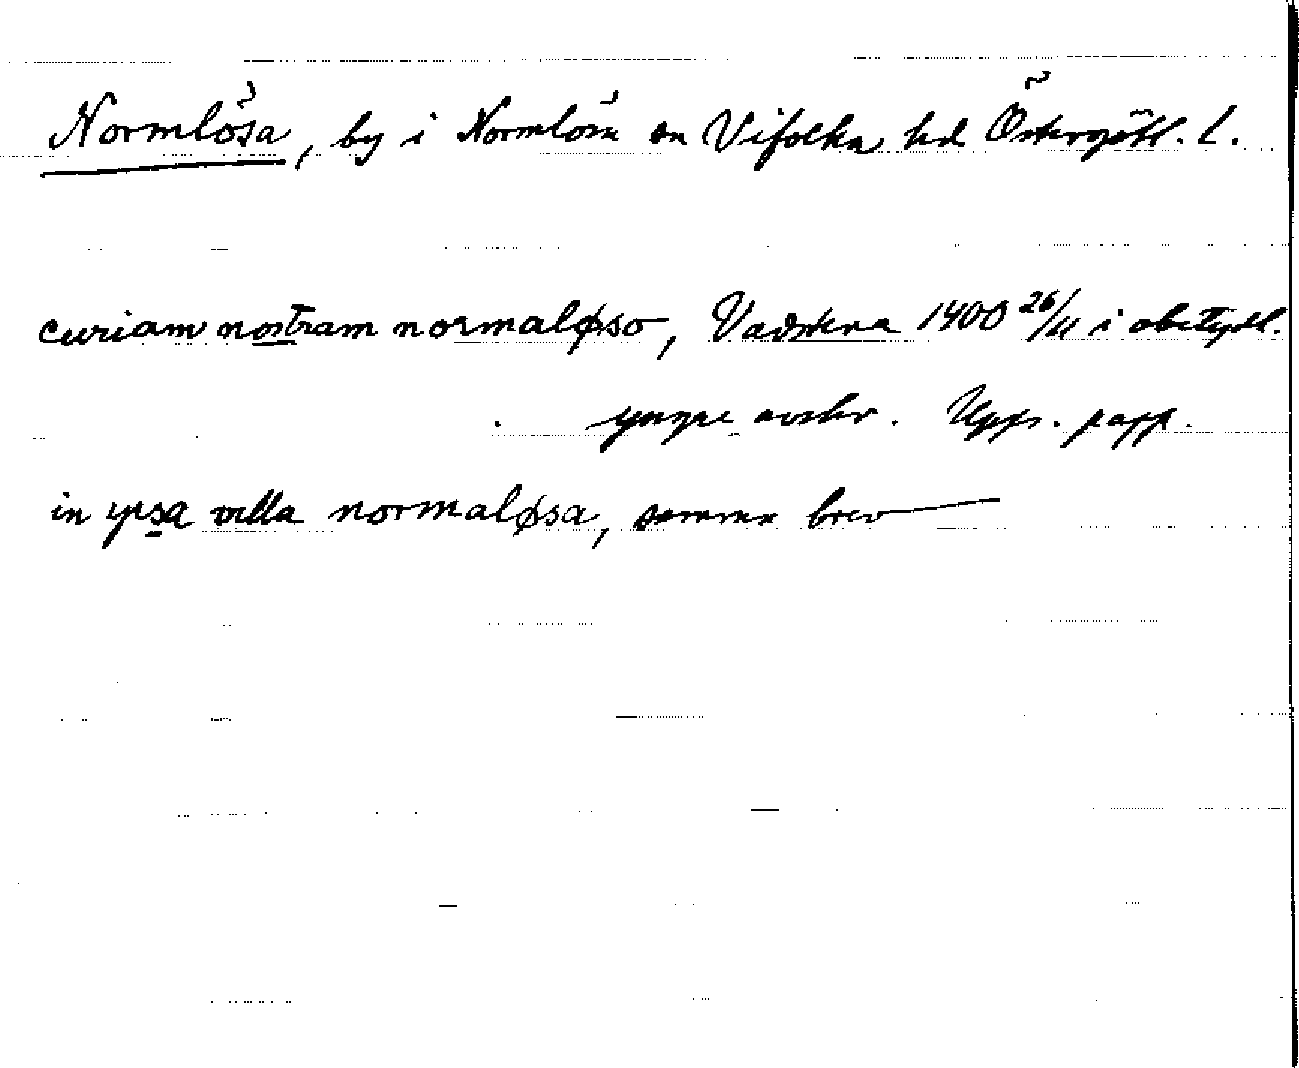 Normlösa, by i Normlösa sn Vifolka hd Östergötl. l.
curiam nostram normaløso, Vadstena 1400 26/11 i obetydl.
yngre avskr. Upps. papp.
in ypsa villa normaløsa, samma brev